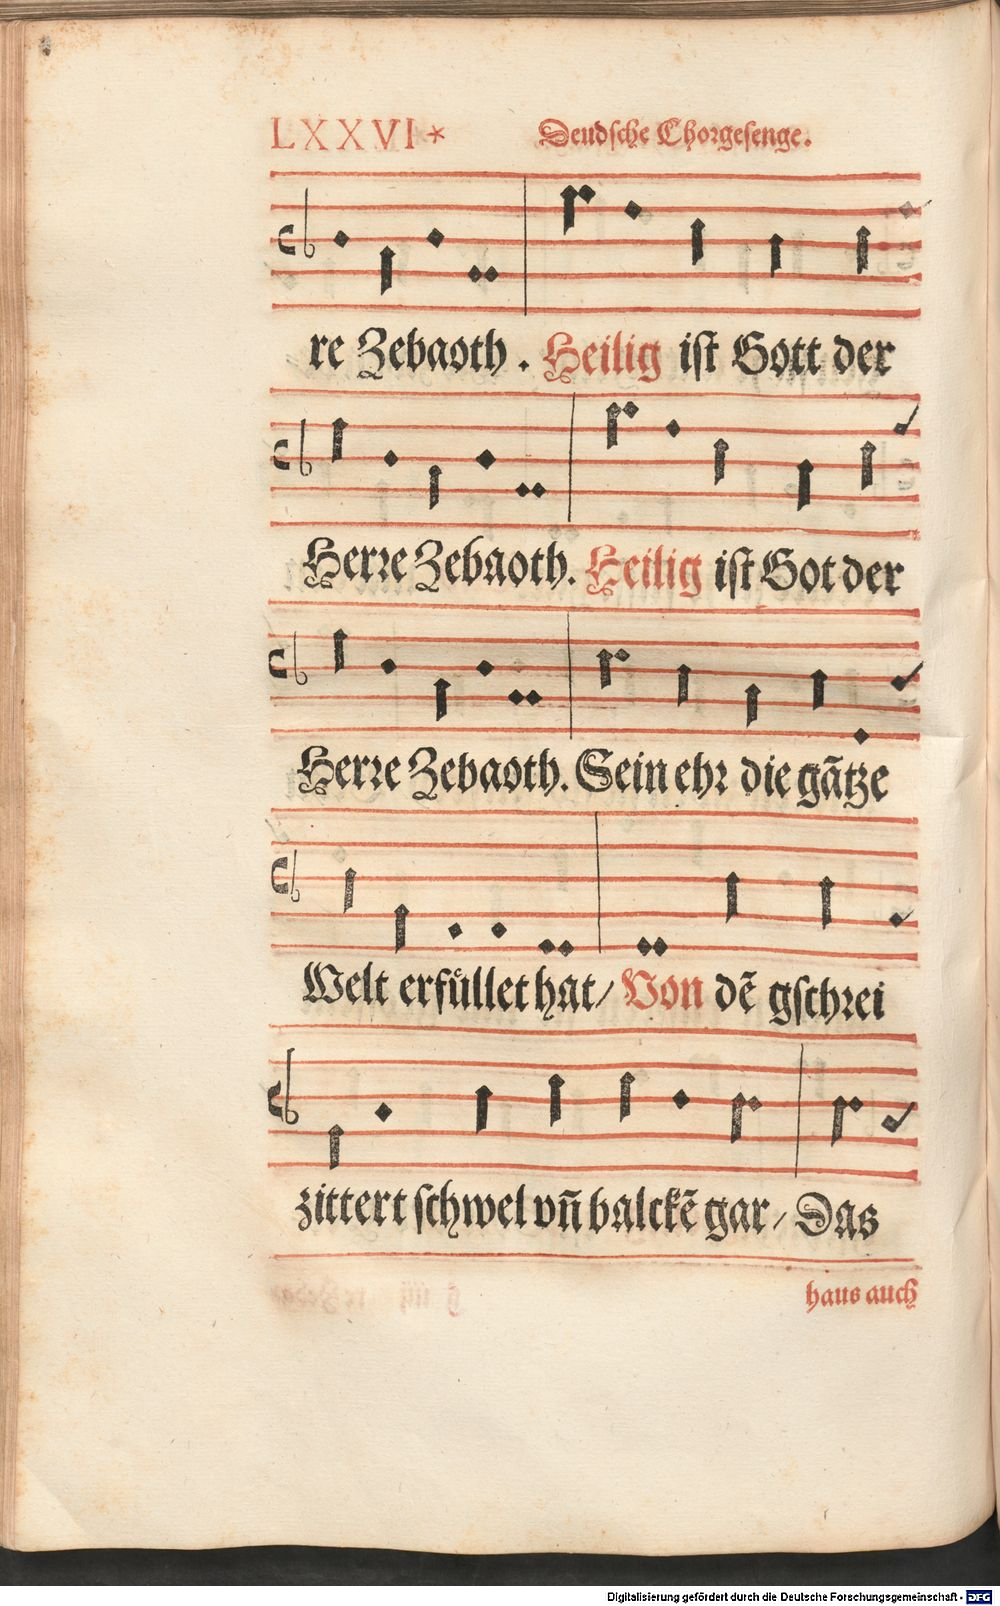 LXXVI* Deudsche Chorgesenge.
re Zebaoth. Heilig ist Gott der
Herre Zebaoth. Heilig ist Got der
Herre Zebaoth. Sein ehr die gātze
Welt erfuͤllet hat/ Von dē gschrei
zittert schwel vn̄ balckē gar/ Das
haus auch
Digitalisierung gefördert durch die Deutsche Forschungsgemeinschaft - DFG